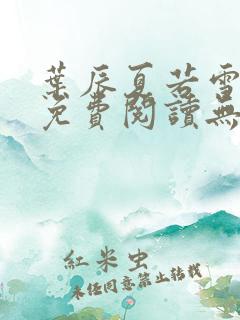 葉辰夏若雪
免費閱讀無
紅米虫
未经同意禁止转载